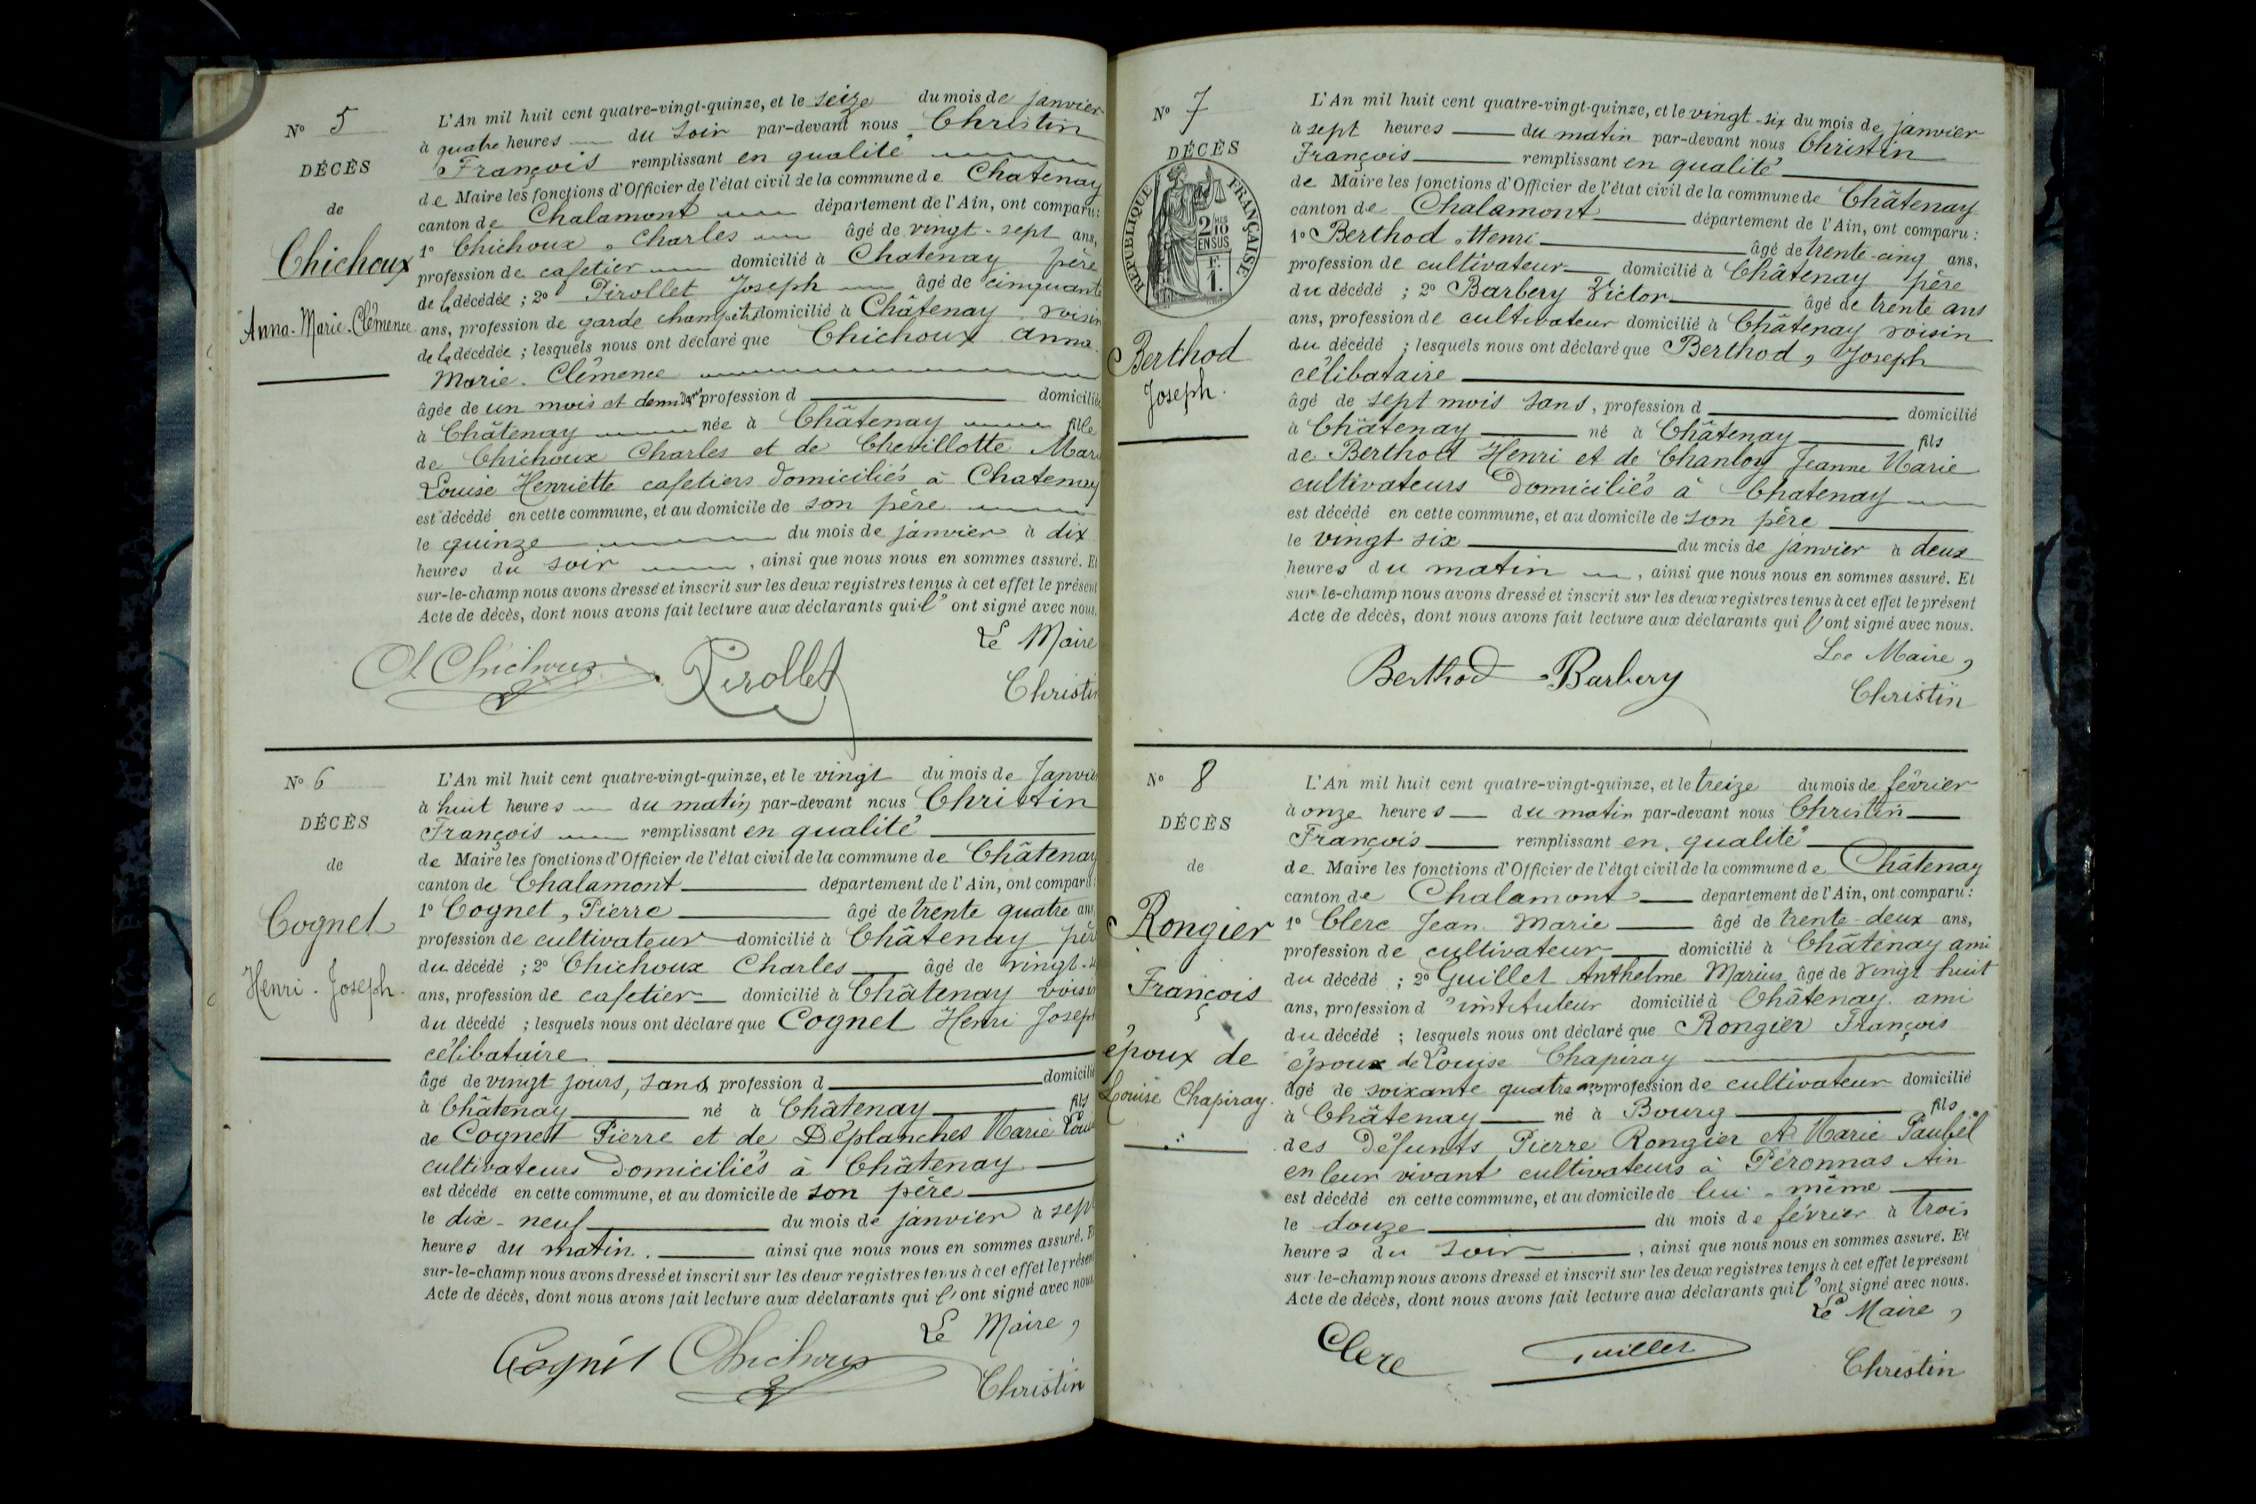 N° 5
DÉCÈS
de
Chichoux
Anna-Marie-Clémence
L'An mil huit cent quatre-vingt-quinze, et le seize du mois de janvier
à quatre heures du soir par-devant nous Christin
François remplissant en qualité
de Maire les fonctions d'Officier de l'état civil de la commune de Chatenay
canton de Chalamont département de l'Ain, ont comparu:
1° Chichoux, Charles âgé de vingt-sept ans,
profession de cafetier domicilié à Chatenay père
de la décédée ; 2° Pirollet Joseph âgé de cinquante
ans, profession de garde champêtre domicilié à Châtenay voisin
de la décédée ; lesquels nous ont déclaré que Chichoux Anna
Marie-Clémence
âgée de un mois et demi sans profession d domiciliée
à Châtenay née à Châtenay fille
de Chichoux Charles et de Chevillotte Mari
Louise Henriette cafetiers domiciliés à Chatenay
est décédé en cette commune, et au domicile de son père
le quinze du mois de janvier à dix
heures du soir, ainsi que nous nous en sommes assuré. Et
sur-le-champ nous avons dressé et inscrit sur les deux registres tenus à cet effet le présent
Acte de décès, dont nous avons fait lecture aux déclarants qui l'ont signé avec nous.
Le Maire
Chichoux Pirollet Christin
N° 6
DÉCÈS
de
Cognet
Henri-Joseph.
L'An mil huit cent quatre-vingt-quinze, et le vingt du mois de Janvier
à huit heures du matin par-devant nous Christin
François remplissant en qualité
de Maire les fonctions d'Officier de l'état civil de la commune de Châtenay
canton de Chalamont département de l'Ain, ont comparu:
1° Cognet, Pierre âgé de trente quatre ans,
profession de cultivateur domicilié à Châtenay père
du décédé ; 2° Chichoux Charles âgé de vingt-
ans, profession de cafetier domicilié à Châtenay voisin
du décédé ; lesquels nous ont déclaré que Cognet Henri Joseph
célibataire
âgé de vingt jours, sans profession d domicilié
à Châtenay né à Châtenay fils
de Cognet Pierre et de Déplanches Marie Louise
cultivateurs domiciliés à Châtenay
est décédé en cette commune, et au domicile de son père
le dix-neuf du mois de janvier à sept
heures du matin. ainsi que nous nous en sommes assuré. Et
sur-le-champ nous avons dressé et inscrit sur les deux registres tenus à cet effet le présent
Acte de décès, dont nous avons fait lecture aux déclarants qui l'ont signé avec nous
Le Maire,
Cognet Chichoux Christin
N° 7
DÉCÈS
RÉPUBLIQUE FRANÇAISE
2/10 EN SUS
F. 1.
Berthod
Joseph.
L'An mil huit cent quatre-vingt-quinze, et le vingt-six du mois de janvier
à sept heures du matin par-devant nous Christin
François remplissant en qualité
de Maire les fonctions d'Officier de l'état civil de la commune de Châtenay
canton de Chalamont département de l'Ain, ont comparu :
1° Berthod, Henri âgé de trente-cinq ans,
profession de cultivateur domicilié à Châtenay père
du décédé ; 2° Barbery Victor âgé de trente ans
ans, profession de cultivateur domicilié à Châtenay voisin
du décédé ; lesquels nous ont déclaré que Berthod, Joseph
célibataire
âgé de sept mois sans, profession d domicilié
à Châtenay né à Châtenay fils
de Berthod Henri et de Chanloy Jeanne Marie
cultivateurs Domiciliés à Chatenay
est décédé en cette commune, et au domicile de son père
le vingt six du mois de janvier à deux
heures du matin, ainsi que nous nous en sommes assuré. Et
sur-le-champ nous avons dressé et inscrit sur les deux registres tenus à cet effet le présent
Acte de décès, dont nous avons fait lecture aux déclarants qui l'ont signé avec nous.
Le Maire,
Berthod Barbery Christin
N° 8
DÉCÈS
de
Rongier
François
époux de
Louise Chapiray.
L'An mil huit cent quatre-vingt-quinze, et le treize du mois de février
à onze heures du matin par-devant nous Christin
François remplissant en qualité
de Maire les fonctions d'Officier de l'état civil de la commune de Châtenay
canton de Chalamont département de l'Ain, ont comparu :
1° Clerc Jean Marie âgé de trente-deux ans,
profession de cultivateur domicilié à Châtenay ami
du décédé ; 2° Guillet Anthelme Marius âgé de vingt huit
ans, profession d'instituteur domicilié à Châtenay ami
du décédé ; lesquels nous ont déclaré que Rongier François
époux de Louise Chapiray
âgé de soixante quatre ans profession de cultivateur domicilié
à Châtenay né à Bourg fils
des Défunts Pierre Rongier et Marie Paubel
en leur vivant cultivateurs à Péronnas Ain
est décédé en cette commune, et au domicile de lui-même
le douze du mois de février à trois
heures du soir, ainsi que nous nous en sommes assuré. Et
sur-le-champ nous avons dressé et inscrit sur les deux registres tenus à cet effet le présent
Acte de décès, dont nous avons fait lecture aux déclarants qui l'ont signé avec nous.
Le Maire,
Clerc Guillet Christin